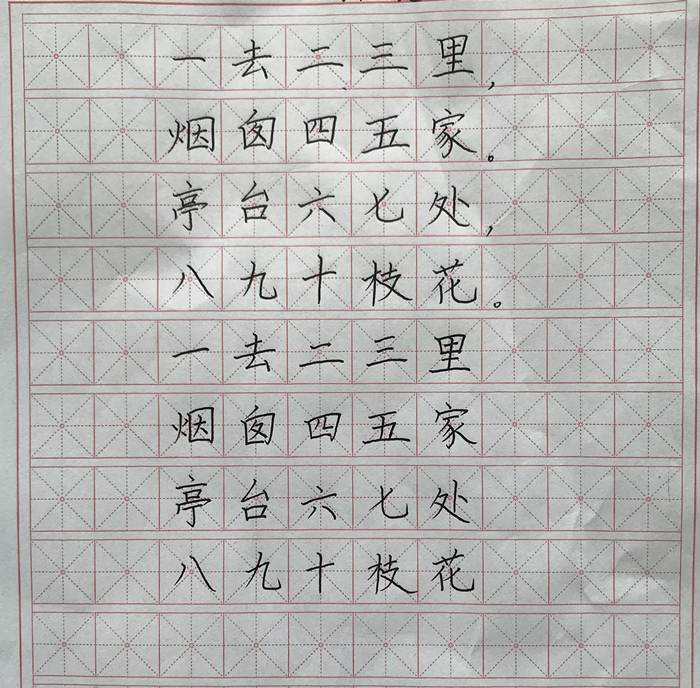 一去二三里，
烟囱四五家。
亭台六七处，
八九十枝花。
一去二三里
烟囱四五家
亭台六七处
八九十枝花